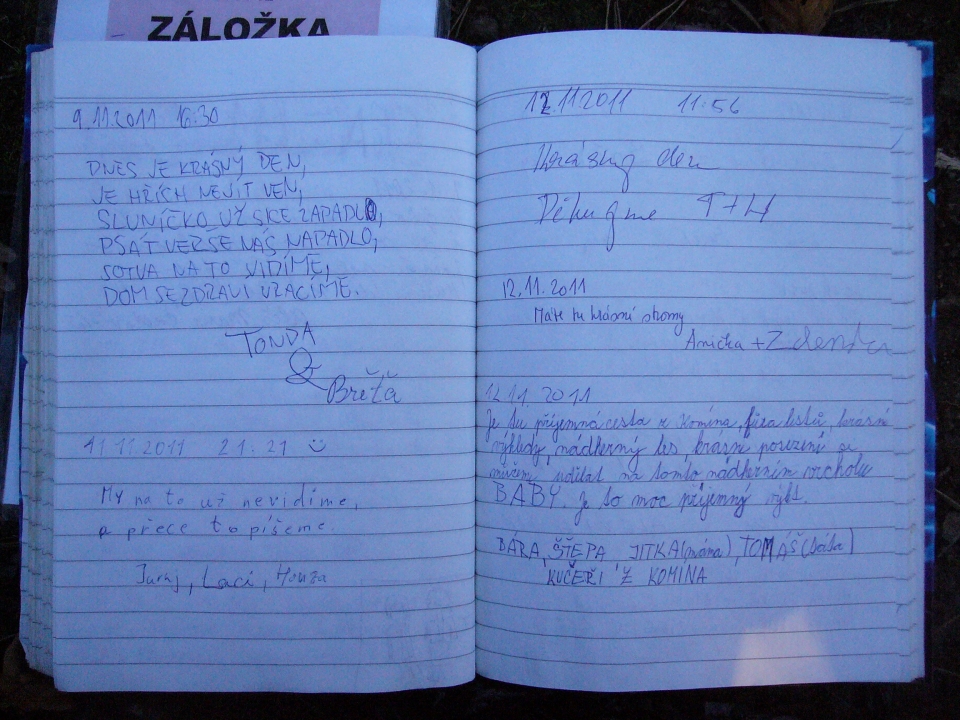 ZÁLOŽKA
9.11.2011 16:30
DNES JE KRÁSNÝ DEN,
JE HŘÍCH NEJÍT VEN,
SLUNÍČKO UŽ SICE ZAPADLO,
PSÁT VERŠE NÁS NAPADLO,
SOTVA NA TO VIDÍME,
DOM SE ZDRAVI VRACÍME.
TONDA
&
Břéťa
11.11.2011 21:21
My na to už nevidíme,
a přece to píšeme.
Juraj, Laci, Honza
12.11.2011 11:56
Krásny den
Děkujme T+H
12.11.2011
Máte tu krásní stromy
Anička + Zdenka
12.11. 2011
Je tu příjemná cesta z Komína, fůra listů, krásné
výhledy, nádherný les krásní posezení se
udělat na tomto nádherním vrcholu
BABY. Je to moc příjemný výlet.
BÁRA, ŠTĚPA JITKA(máma), TOMÁŠ(táta)
KUČEŘI Z KOMÍNA